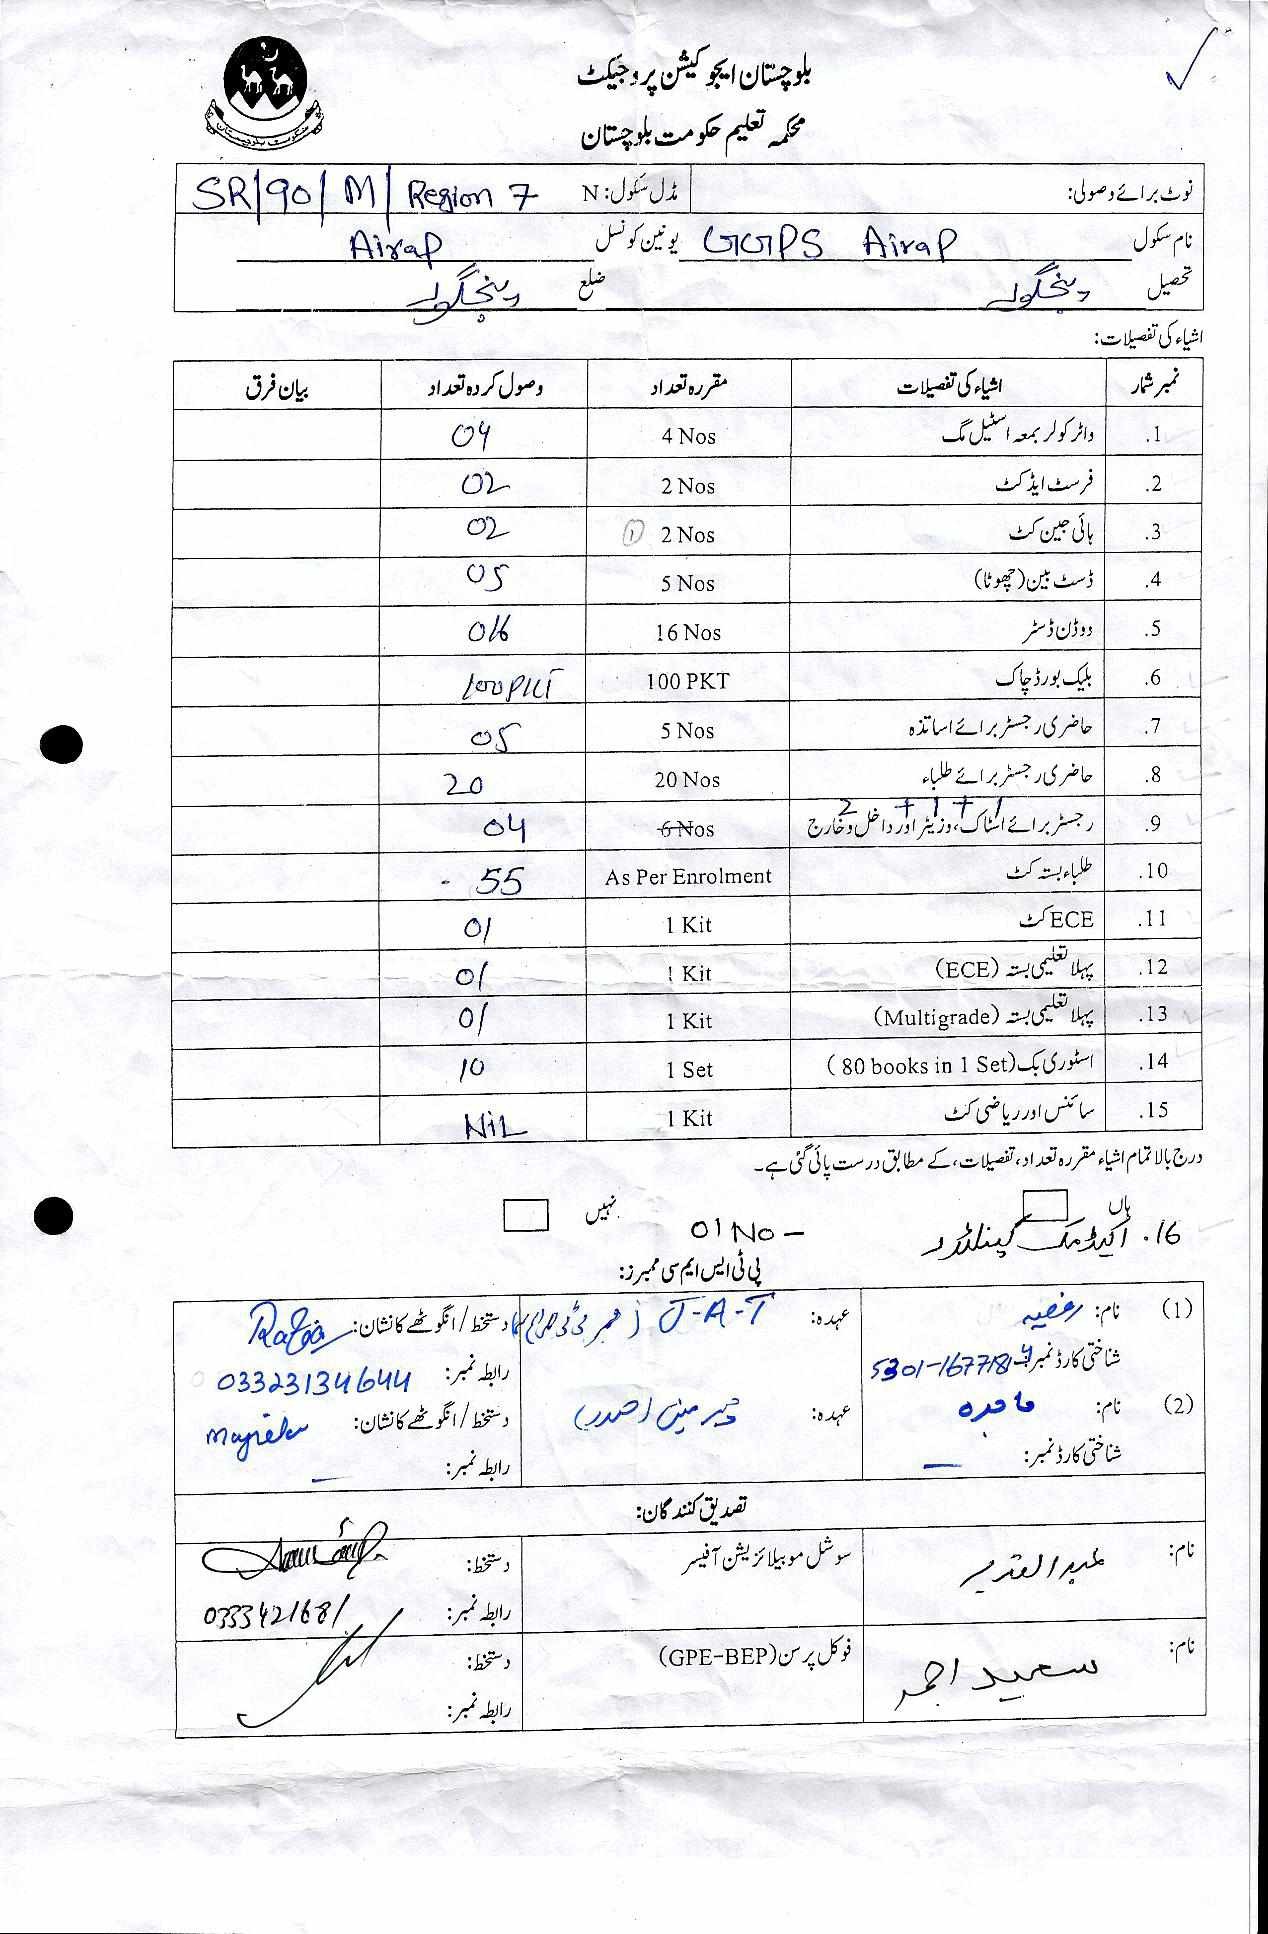 بلوچستان ایجوکیشن پروجیکٹ
محکمہ تعلیم حکومت بلوچستان
نوٹ برائے وصولی: مڈل سکول: N SR/90/M/Region 7
نام سکول GGPS Airap یونین کونسل Airap
تحصیل پنجگور ضلع پنجگور
اشیاء کی تفصیلات:
نمبر شمار اشیاء کی تفصیلات مقررہ تعداد وصول کردہ تعداد بیان فرق
1. واٹر کولر بمعہ اسٹیل مگ 4 Nos 04
2. فرسٹ ایڈ کٹ 2 Nos 02
3. ہائی جین کٹ 2 Nos 1 02
4. ڈسٹ بین (چھوٹا) 5 Nos 05
5. ووڈن ڈسٹر 16 Nos 016
6. بلیک بورڈ چاک 100 PKT 100 PKT
7. حاضری رجسٹر برائے اساتذہ 5 Nos 05
8. حاضری رجسٹر برائے طلباء 20 Nos 20
2 + 1 + 1
9. رجسٹر برائے اسٹاک، وزیٹر اور داخل و خارج 6 Nos 04
10. طلباء بستہ کٹ As Per Enrolment - 55
11. ECE کٹ 1 Kit 01
12. پہلا تعلیمی بستہ (ECE) 1 Kit 01
13. پہلا تعلیمی بستہ (Multigrade) 1 Kit 01
14. اسٹوری بک (80 books in 1 Set) 1 Set 10
15. سائنس اور ریاضی کٹ 1 Kit NIL
درج بالا تمام اشیاء مقررہ تعداد، تفصیلات، کے مطابق درست پائی گئی ہے۔
ہاں نہیں
16. اکیڈمک کیلنڈر 01 No –
پی ٹی ایس ایم سی ممبرز:
(1) نام: رضیہ عہدہ: J-A-T دستخط/انگوٹھے کا نشان: Razia
شناختی کارڈ نمبر: رابطہ نمبر: 03323134644
(2) نام: ماجدہ عہدہ: چیرمین (صدر) دستخط/انگوٹھے کا نشان:
شناختی کارڈ نمبر: — رابطہ نمبر: —
تصدیق کنندگان:
نام: عبدالقدیر سوشل موبیلائزیشن آفیسر دستخط:
رابطہ نمبر: 0333421681
نام: سعید احمد فوکل پرسن (GPE-BEP) دستخط:
رابطہ نمبر: